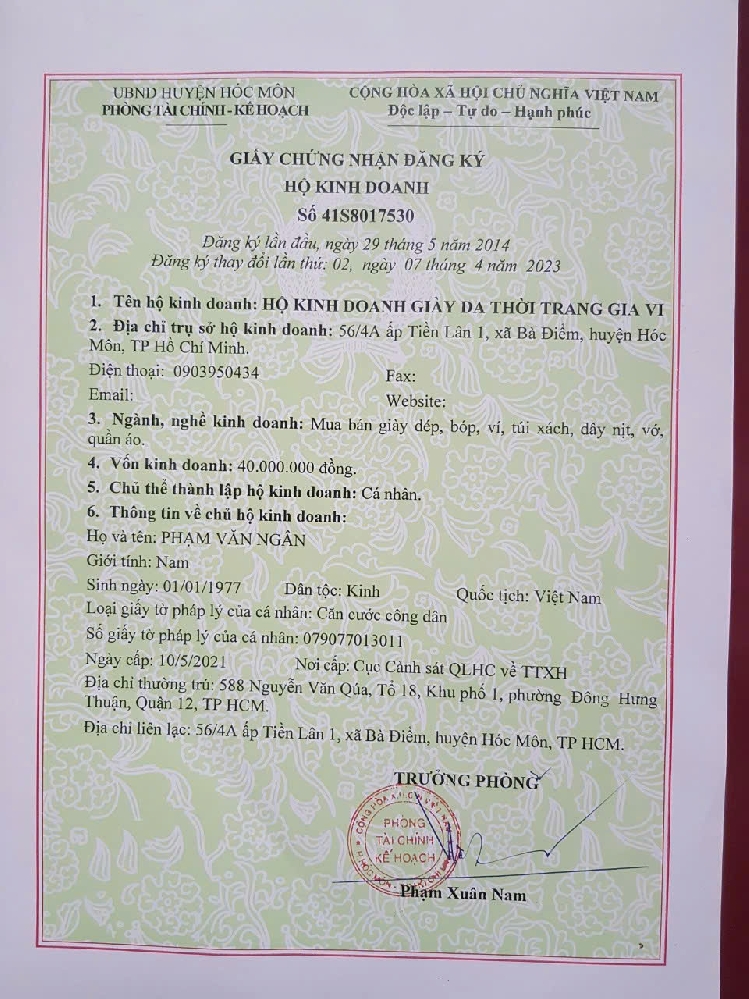 UBND HUYỆN HÓC MÔN
PHÒNG TÀI CHÍNH - KẾ HOẠCH
CỘNG HÒA XÃ HỘI CHỦ NGHĨA VIỆT NAM
Độc lập – Tự do – Hạnh phúc
GIẤY CHỨNG NHẬN ĐĂNG KÝ
HỘ KINH DOANH
Số 41S8017530
Đăng ký lần đầu, ngày 29 tháng 5 năm 2014
Đăng ký thay đổi lần thứ: 02, ngày 07 tháng 4 năm 2023
1. Tên hộ kinh doanh: HỘ KINH DOANH GIÀY DA THỜI TRANG GIA VI
2. Địa chỉ trụ sở hộ kinh doanh: 56/4A ấp Tiền Lân 1, xã Bà Điểm, huyện Hóc
Môn, TP Hồ Chí Minh.
Điện thoại: 0903950434 Fax:
Email: Website:
3. Ngành, nghề kinh doanh: Mua bán giày dép, bóp, ví, túi xách, dây nịt, vớ,
quần áo.
4. Vốn kinh doanh: 40.000.000 đồng.
5. Chủ thể thành lập hộ kinh doanh: Cá nhân.
6. Thông tin về chủ hộ kinh doanh:
Họ và tên: PHẠM VĂN NGÂN
Giới tính: Nam
Sinh ngày: 01/01/1977 Dân tộc: Kinh Quốc tịch: Việt Nam
Loại giấy tờ pháp lý của cá nhân: Căn cước công dân
Số giấy tờ pháp lý của cá nhân: 079077013011
Ngày cấp: 10/5/2021 Nơi cấp: Cục Cảnh sát QLHC về TTXH
Địa chỉ thường trú: 588 Nguyễn Văn Qúa, Tổ 18, Khu phố 1, phường Đông Hưng
Thuận, Quận 12, TP HCM.
Địa chỉ liên lạc: 56/4A ấp Tiền Lân 1, xã Bà Điểm, huyện Hóc Môn, TP HCM.
TRƯỞNG PHÒNG
PHÒNG
TÀI CHÍNH
KẾ HOẠCH
Phạm Xuân Nam